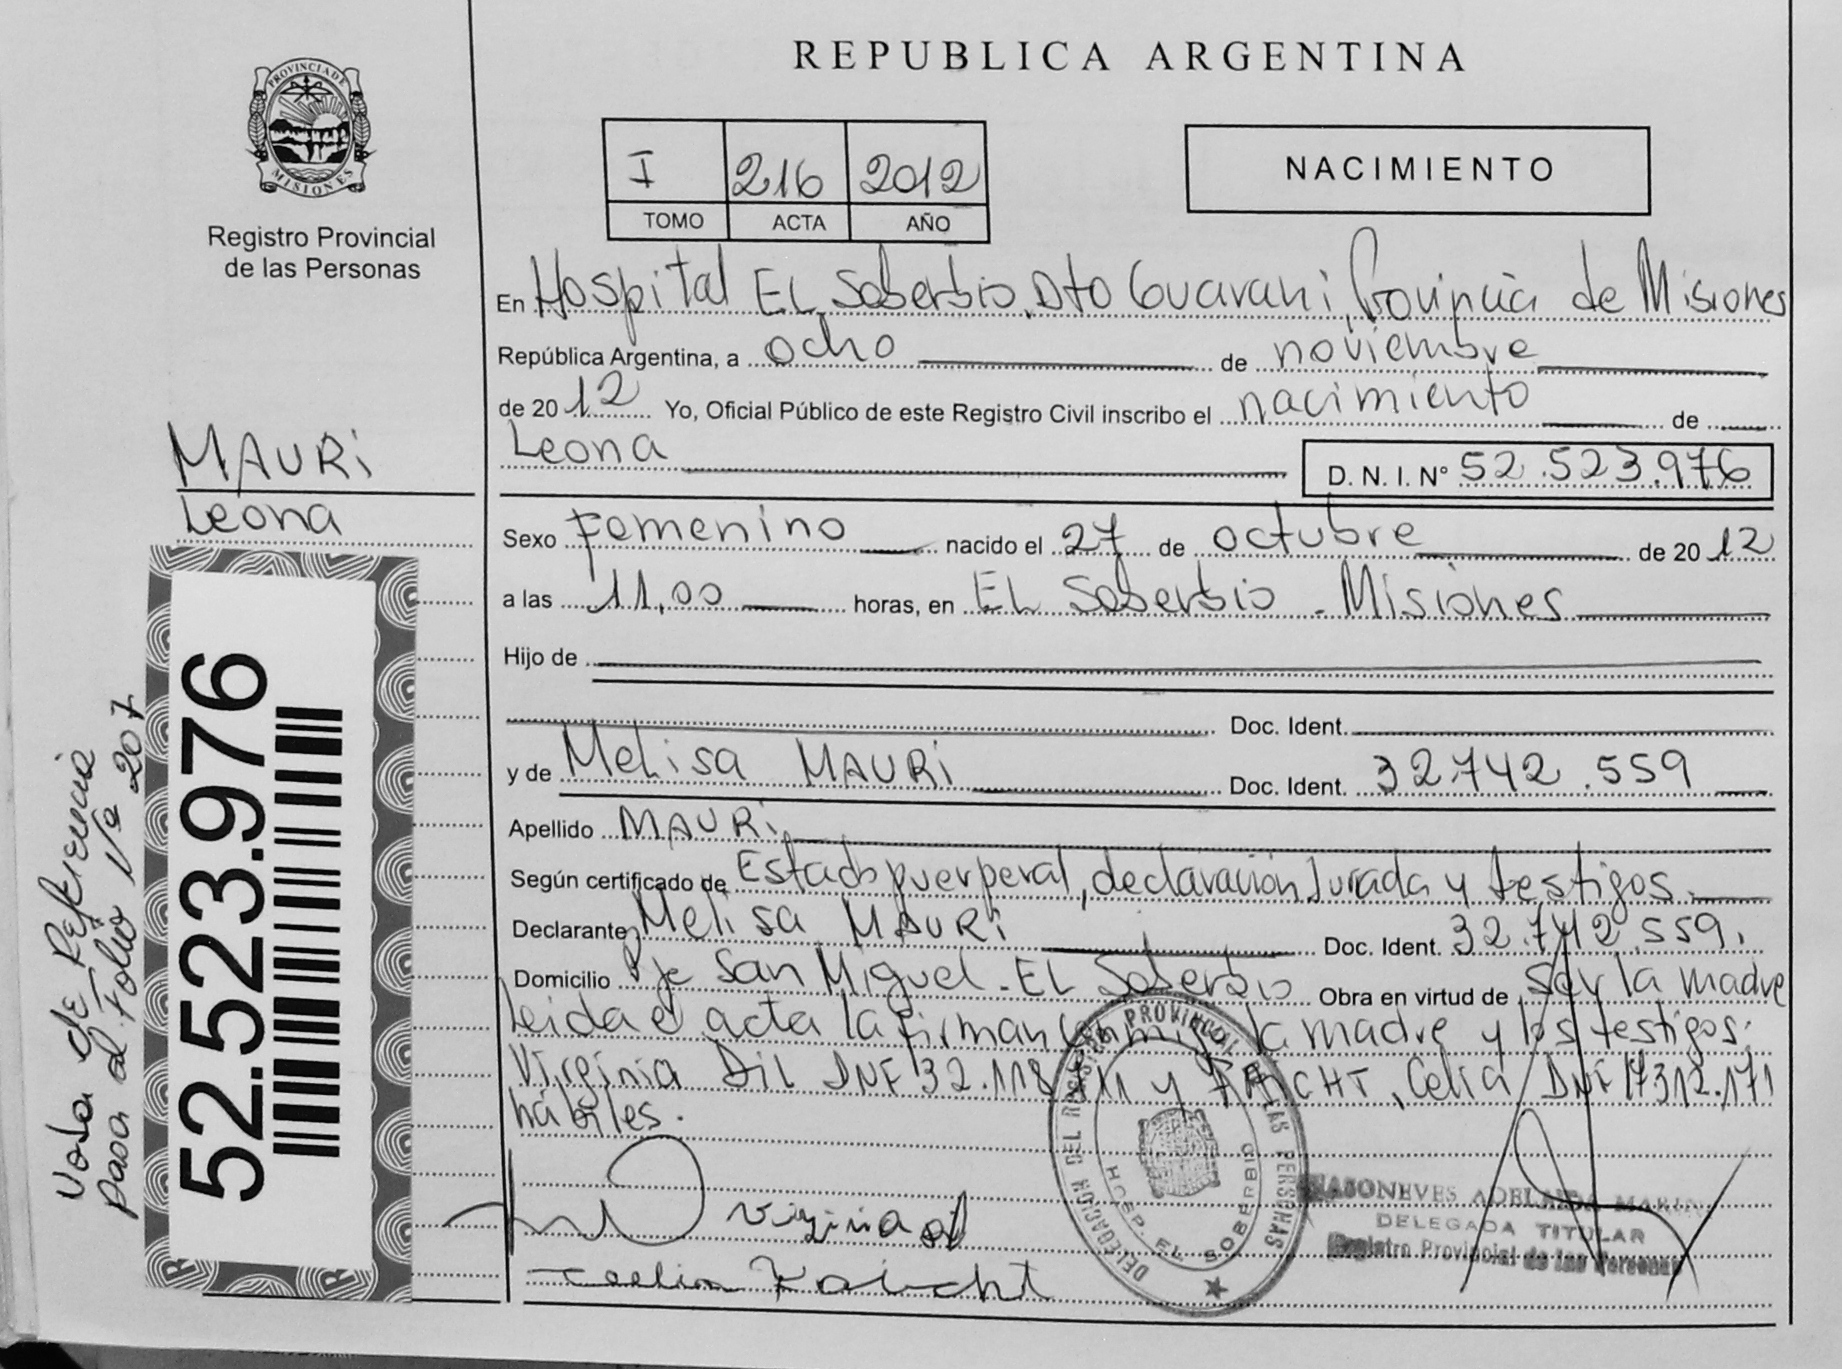 REPUBLICA ARGENTINA
PROVINCIA DE MISIONES
Registro Provincial
de las Personas
I 216 2012
TOMO ACTA AÑO
NACIMIENTO
En Hospital EL Soberbio Dto Guarani, Provincia de Misiones
República Argentina, a ocho de noviembre
de 2012 Yo, Oficial Público de este Registro Civil inscribo el nacimiento de
Leona D. N. I. N° 52.523.976
MAURi
Leona
Sexo Femenino nacido el 27 de octubre de 2012
a las 11,00 horas, en EL Soberbio - Misiones
Hijo de
Doc. Ident.
y de Melisa MAURi Doc. Ident. 32742.559
Apellido MAURi
Según certificado de Estado puerperal, declaración Jurada y testigos.
Declarante Melisa MAURi Doc. Ident. 32.742.559.
Domicilio Pje San Miguel - EL Soberbio Obra en virtud de Ser la madre
leida el acta la firman conmigo la madre y los testigos:
Virginia Dil DNI 32.118 11 y Celia DNI 17312.171
hábiles.
virginia dil
52.523.976
Nota de Referencia
pasa al Folio Nº 207
DELEGACION DEL REGISTRO PROVINCIAL DE LAS PERSONAS
HOSP. EL SOBERBIO
ADELAIDA
DELEGADA TITULAR
Registro Provincial de las Personas